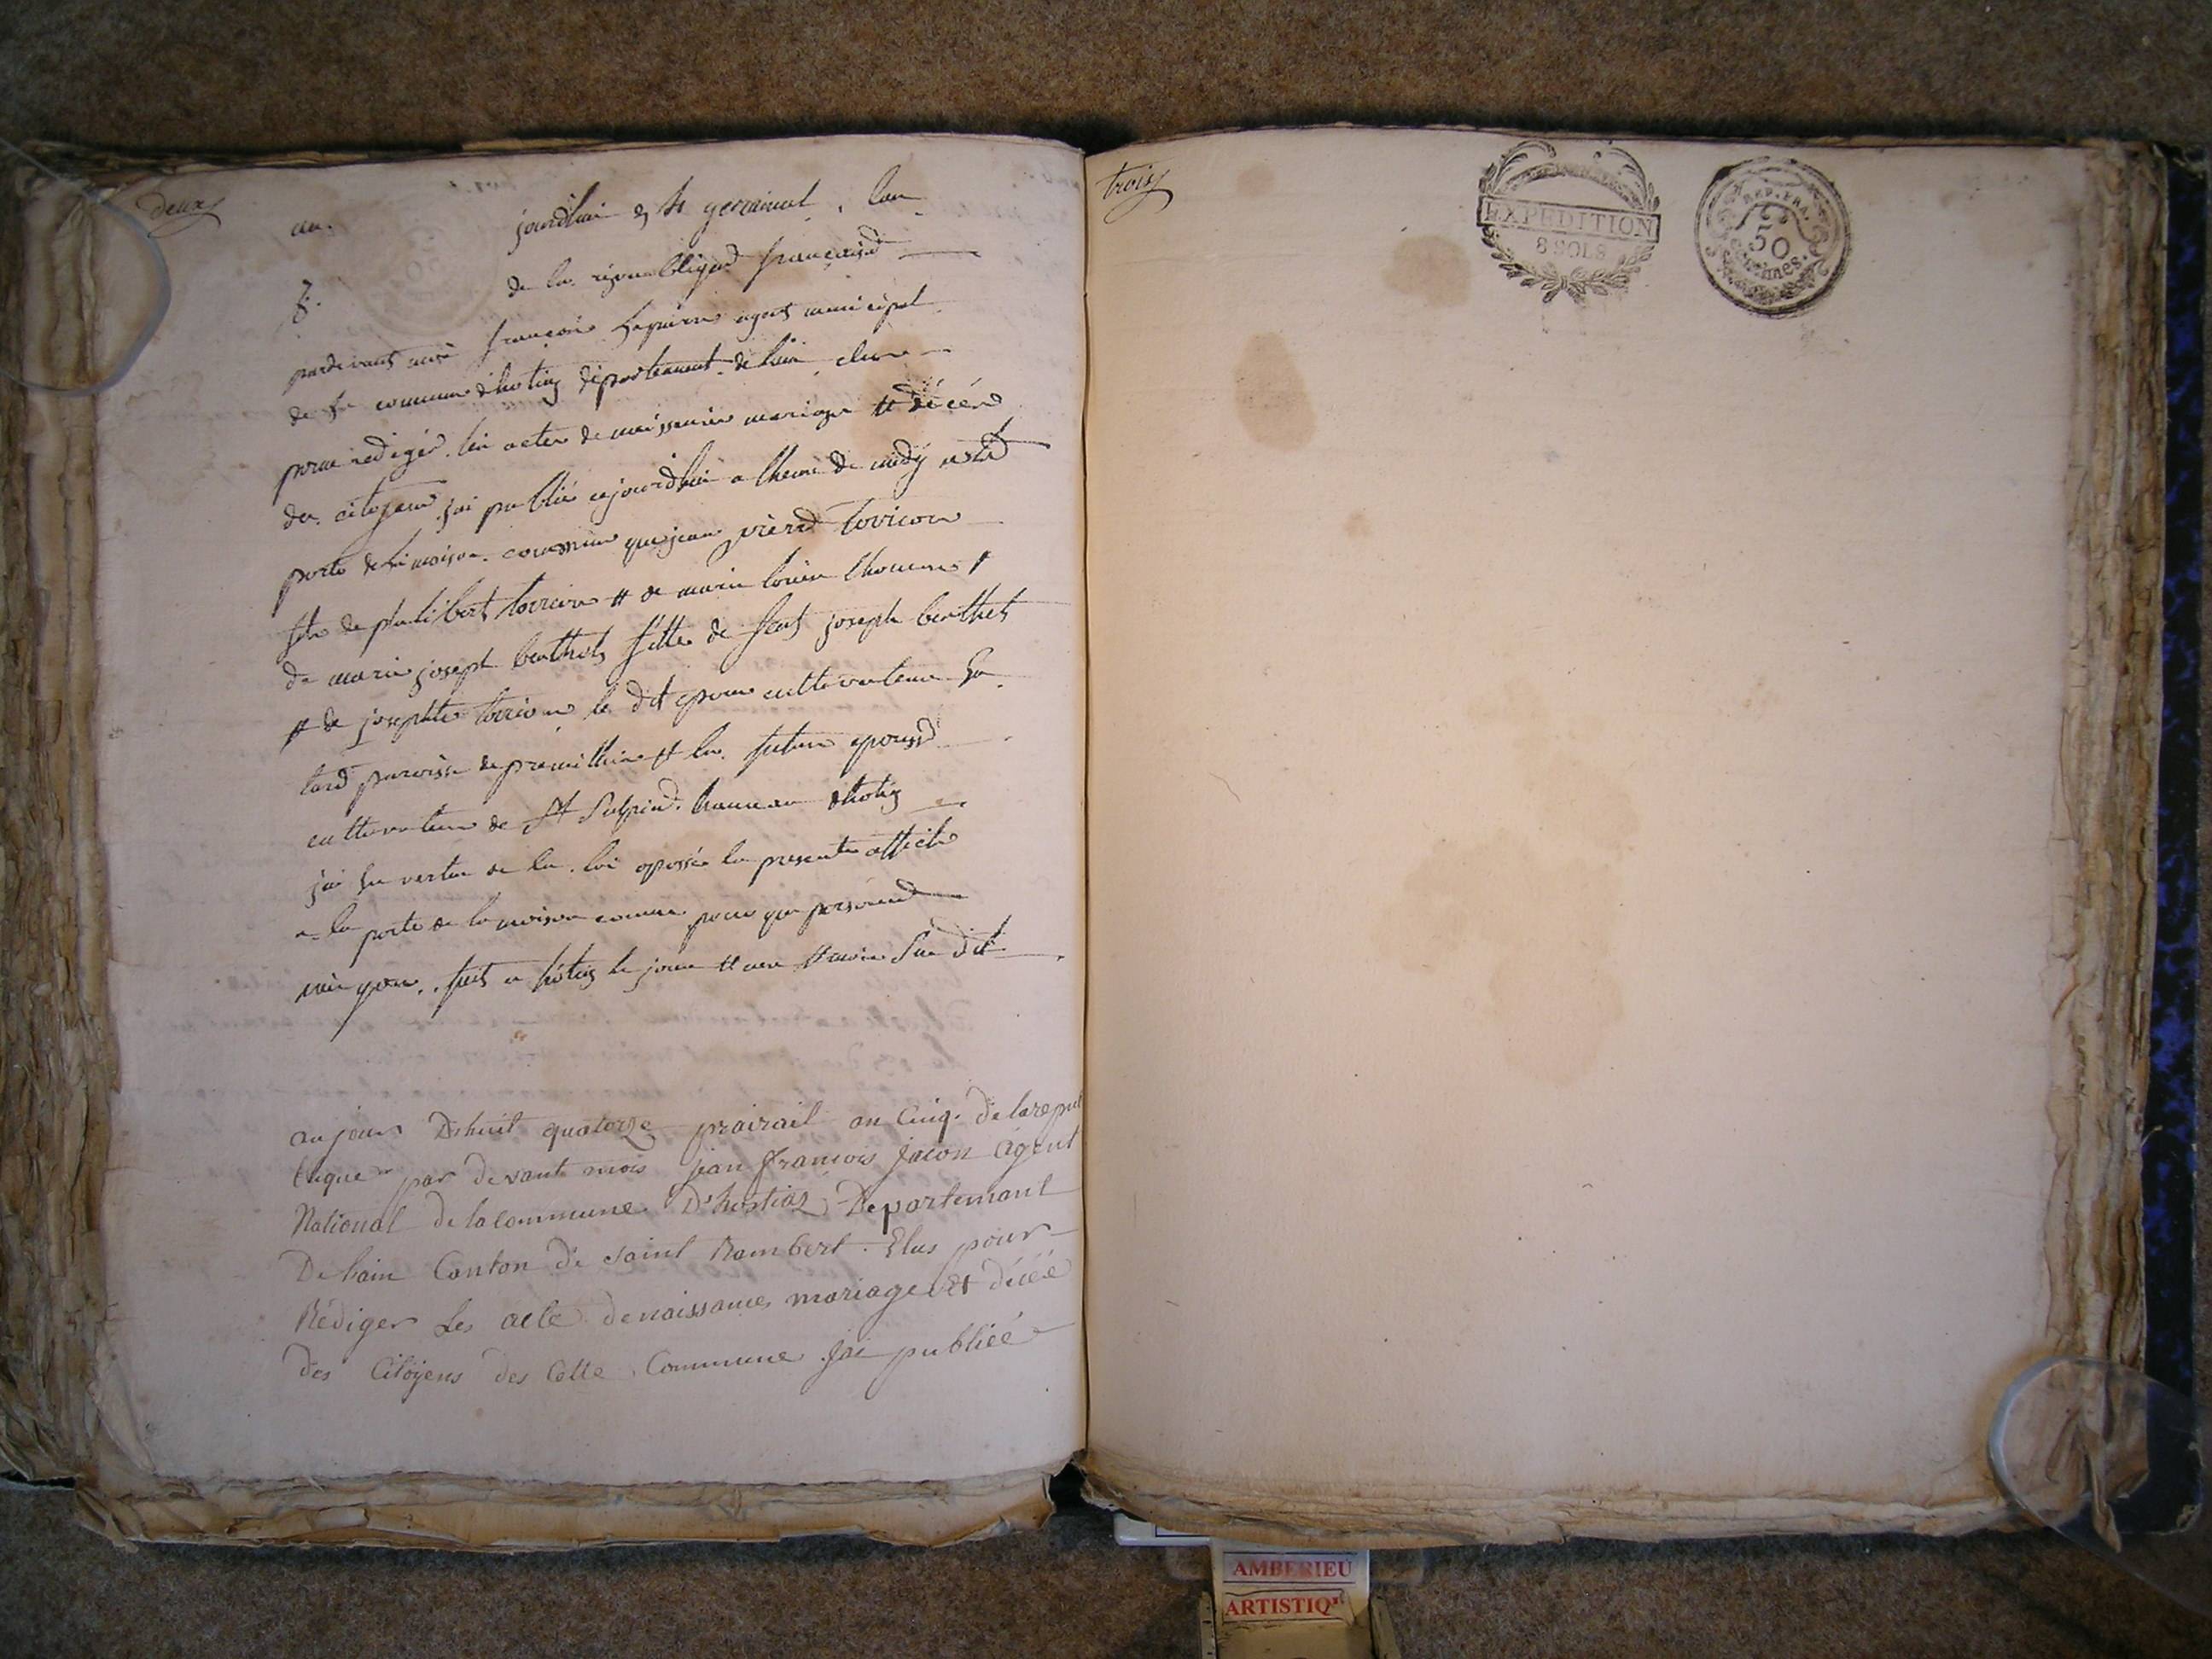 deux
au jourdhui germinal lan
de la républiqu française
pardevant moi françois agent municipal
de la commune dhostiaz département de lain
pour rediger les actes de naissance mariage et décéd
des citoyens jai publié cejourdhui a lheure de midy
porte de la maison commune que jean pierre
fils de philibert et de marie
de marie joseph berthet fille de joseph berthet
et de josephte le dit epoux cultivateur
paroisse de et la future epouse
cultivateur de St Sulpice hameau dhotiaz
jai en vertu de la loi aposée la presente affiche
a la porte de la maison comune pour que personne
fait a hotiaz le jour et an et mois sus dit
aujours Dhuit quatorze prairail an Cinq. de larepub
lique par devant mois jean françois jacon agent
National de lacommune D'hostiaz Departemant
De lain Canton de saint Rambert. Elus pour
Rédiger Les acte denaissance mariage et décée
des Citoyens des Cette Commune jai publiée
trois
EXPEDITION
8 SOLS
REP. FRA.
50
Centimes.
AMBERIEU
ARTISTIQ